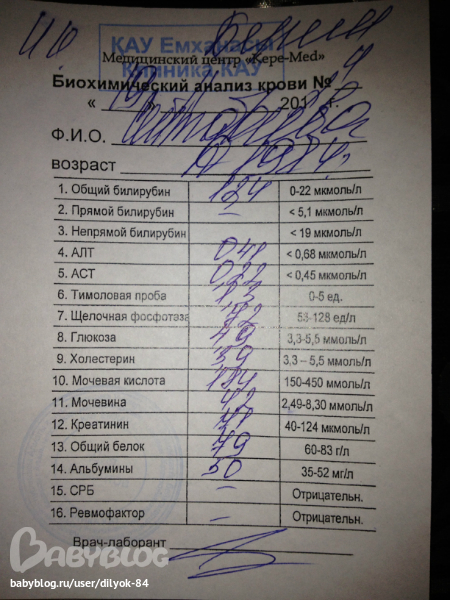 ҚАУ Емханасы
Медицинский центр «Kepe-Med»
Клиника КАУ
Биохимический анализ крови №
« 201 г.
Ф.И.О.
возраст 1984г.
1. Общий билирубин 12,4 0-22 мкмоль/л
2. Прямой билирубин – < 5,1 мкмоль/л
3. Непрямой билирубин < 19 мкмоль/л
4. АЛТ < 0,68 мкмоль/л
5. АСТ 0,22 < 0,45 мкмоль/л
6. Тимоловая проба 1,3 0-5 ед.
7. Щелочная фосфотаза 72 53-128 ед/л
8. Глюкоза 4,9 3,3-5,5 ммоль/л
9. Холестерин 3,9 3,3 – 5,5 ммоль/л
10. Мочевая кислота 184 150-450 ммоль/л
11. Мочевина 4,2 2,49-8,30 ммоль/л
12. Креатинин 40-124 мкмоль/л
13. Общий белок 79 60-83 г/л
14. Альбумины 50 35-52 мг/л
15. СРБ – Отрицательн.
16. Ревмофактор – Отрицательн.
Врач-лаборант
BABYBLOG
babyblog.ru/user/dilyok-84